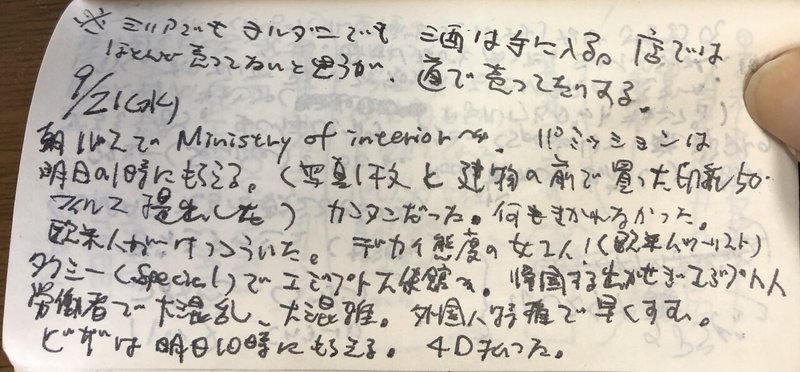 ※ シリアでもヨルダンでも 酒は手に入る。店では
ほとんど売ってないと思うが、道で売ってたりする。
9/21(水)
朝 Ministry of interior へ。パーミッションは
明日の1時にもらえる。(写真1枚と建物の前で買った印紙50
フィルス提出した) カンタンだった。何もきかれなかった。
欧米人がけっこういた。デカイ態度の女2人!(欧米人ツーリスト)
タクシー(Special)でエジプト大使館へ。帰国する出かせぎエジプト人
労働者で大混乱、大混雑。外国人特権で早くすむ。
ビザは明日10時にもらえる。4D払った。